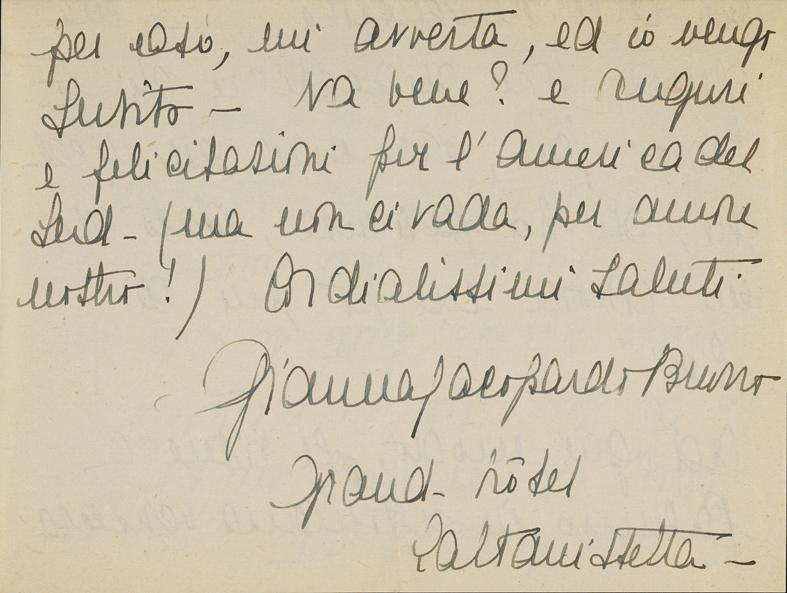 per caso, mi avverta, ed io vengo
subito – Va bene? e auguri
e felicitazioni per l'America del
Sud – (ma non ci vada, per amore
nostro!) Cordialissimi saluti
Gianna Jacopardo Bruno
Grand-hôtel
Caltanissetta –